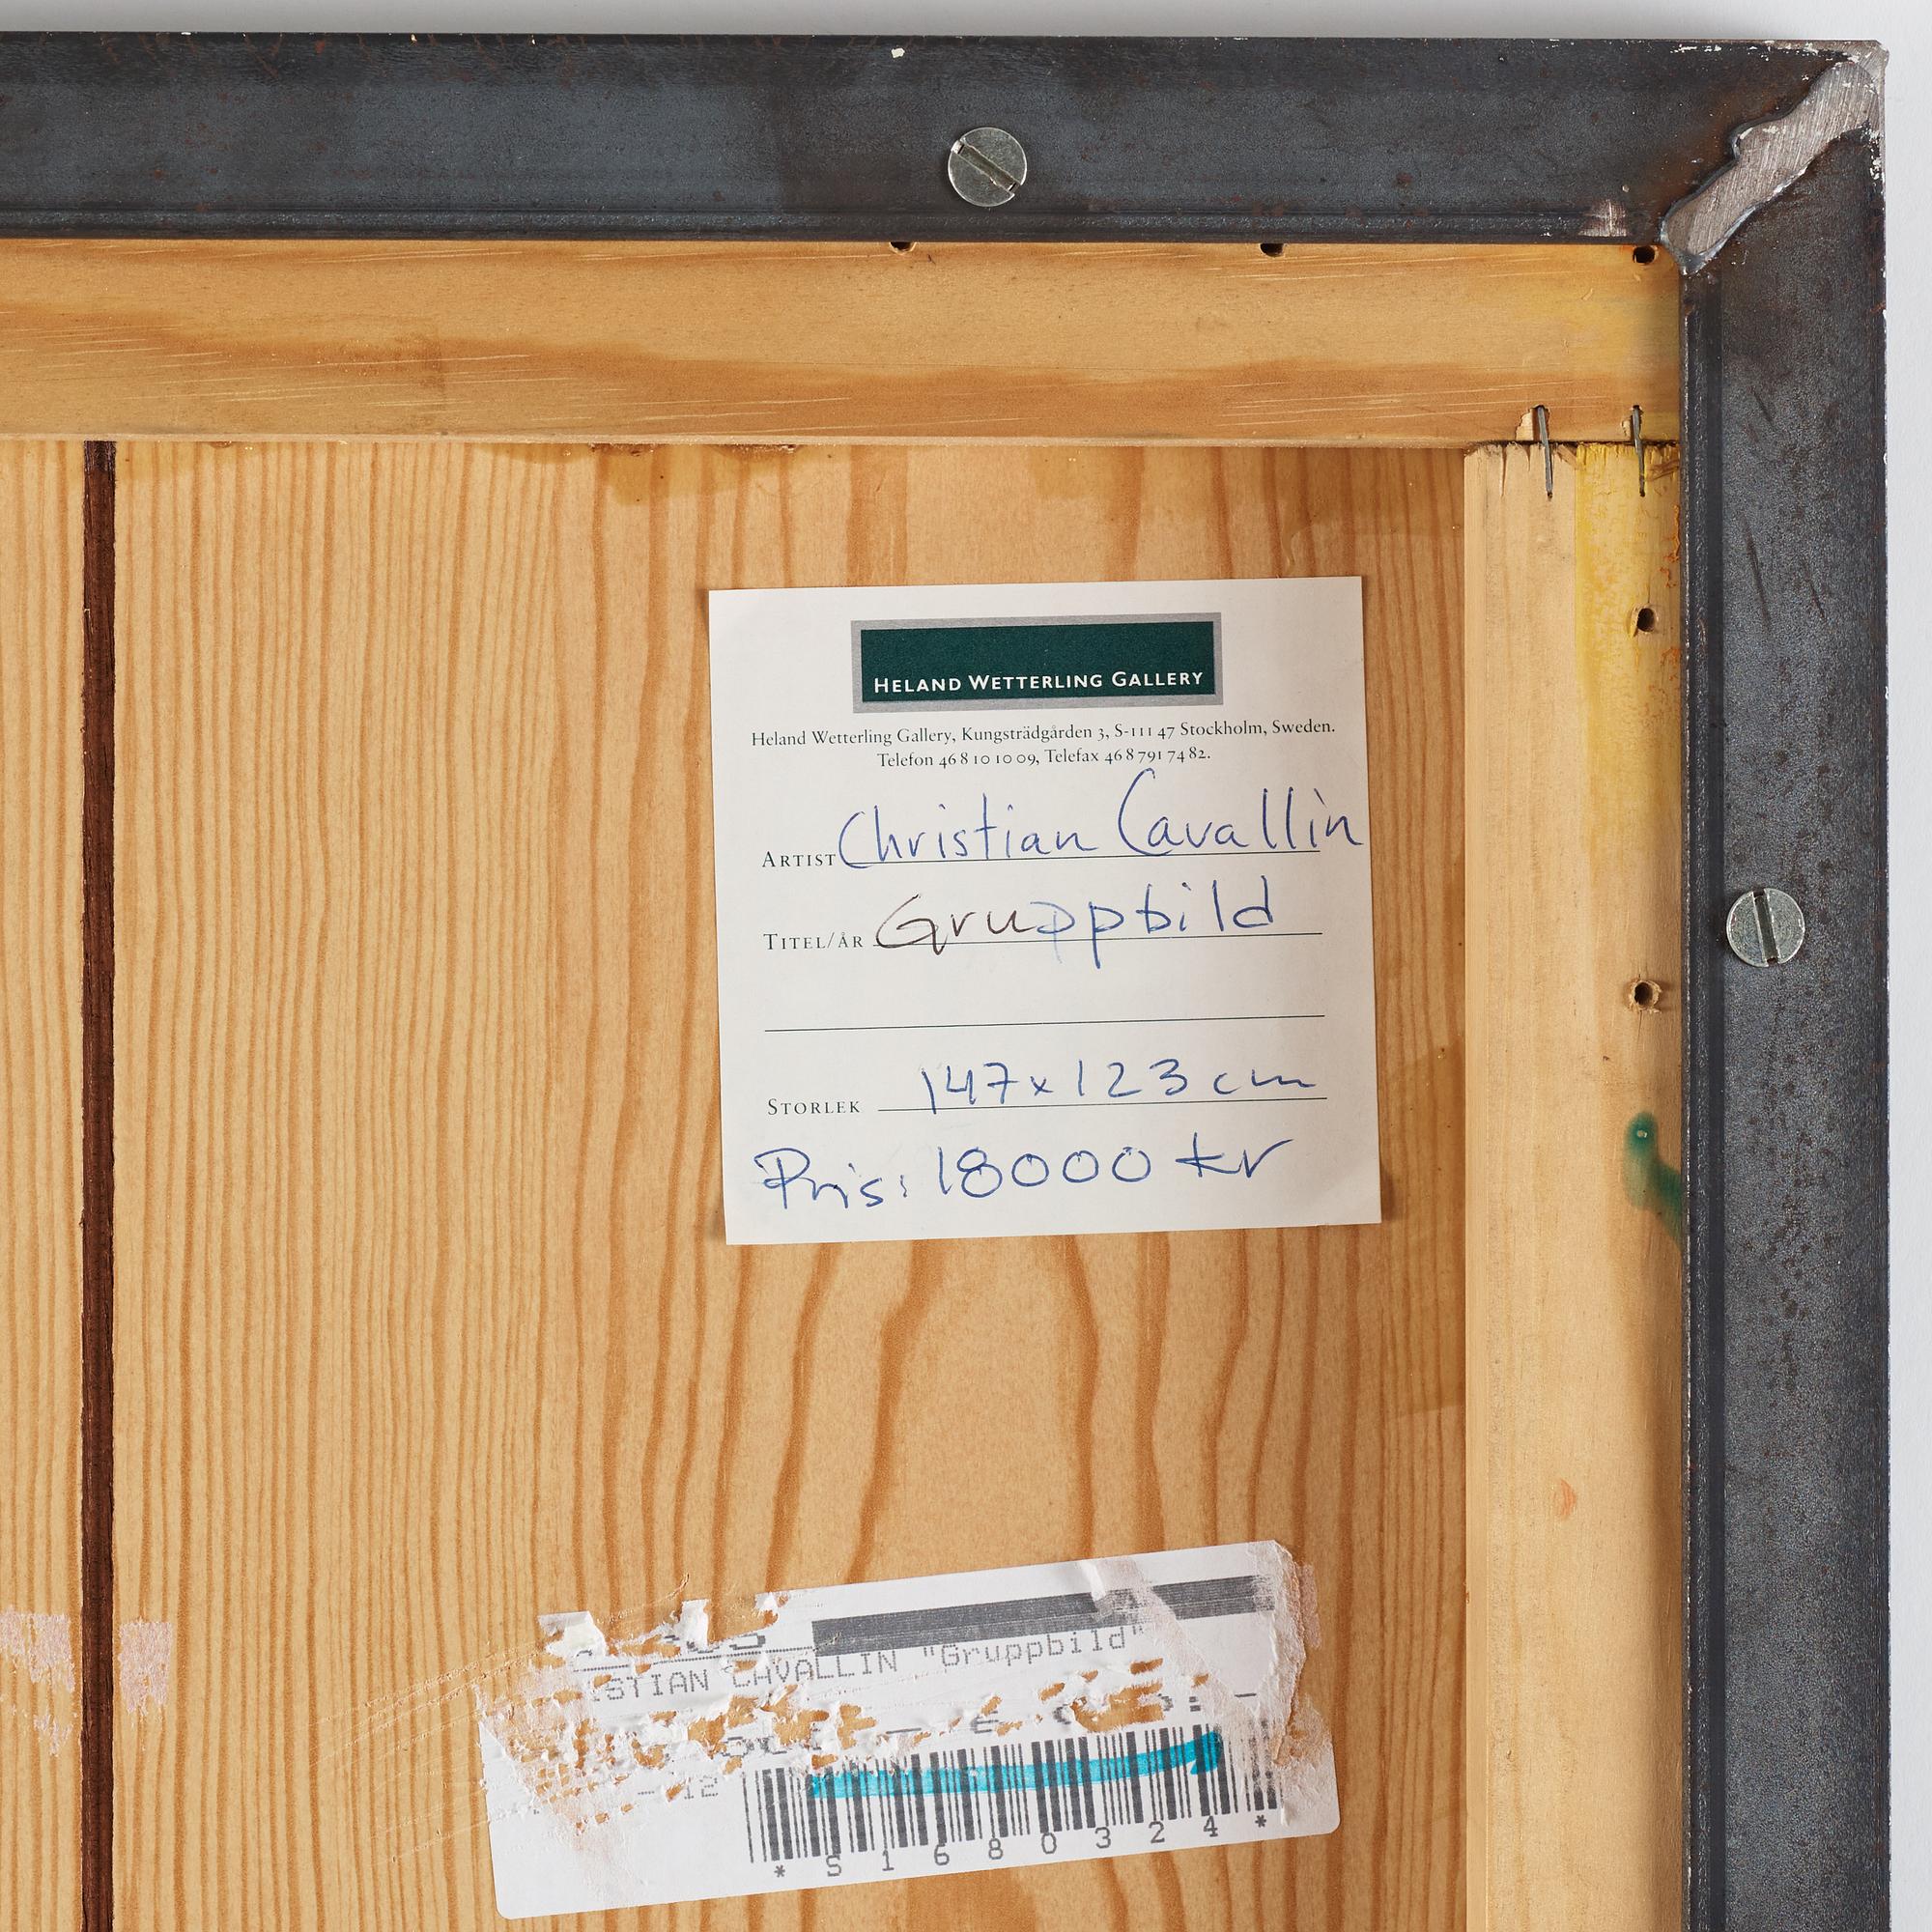 HELAND WETTERLING GALLERY
Heland Wetterling Gallery, Kungsträdgården 3, S-111 47 Stockholm, Sweden.
Telefon 46 8 10 10 09, Telefax 46 8 791 74 82.
ARTIST Christian Cavallin
TITEL/ÅR Gruppbild
STORLEK 147x123 cm
Pris: 18000 kr
STIAN CAVALLIN "Gruppbild"
- 12
* S 1 6 8 0 3 2 4 *